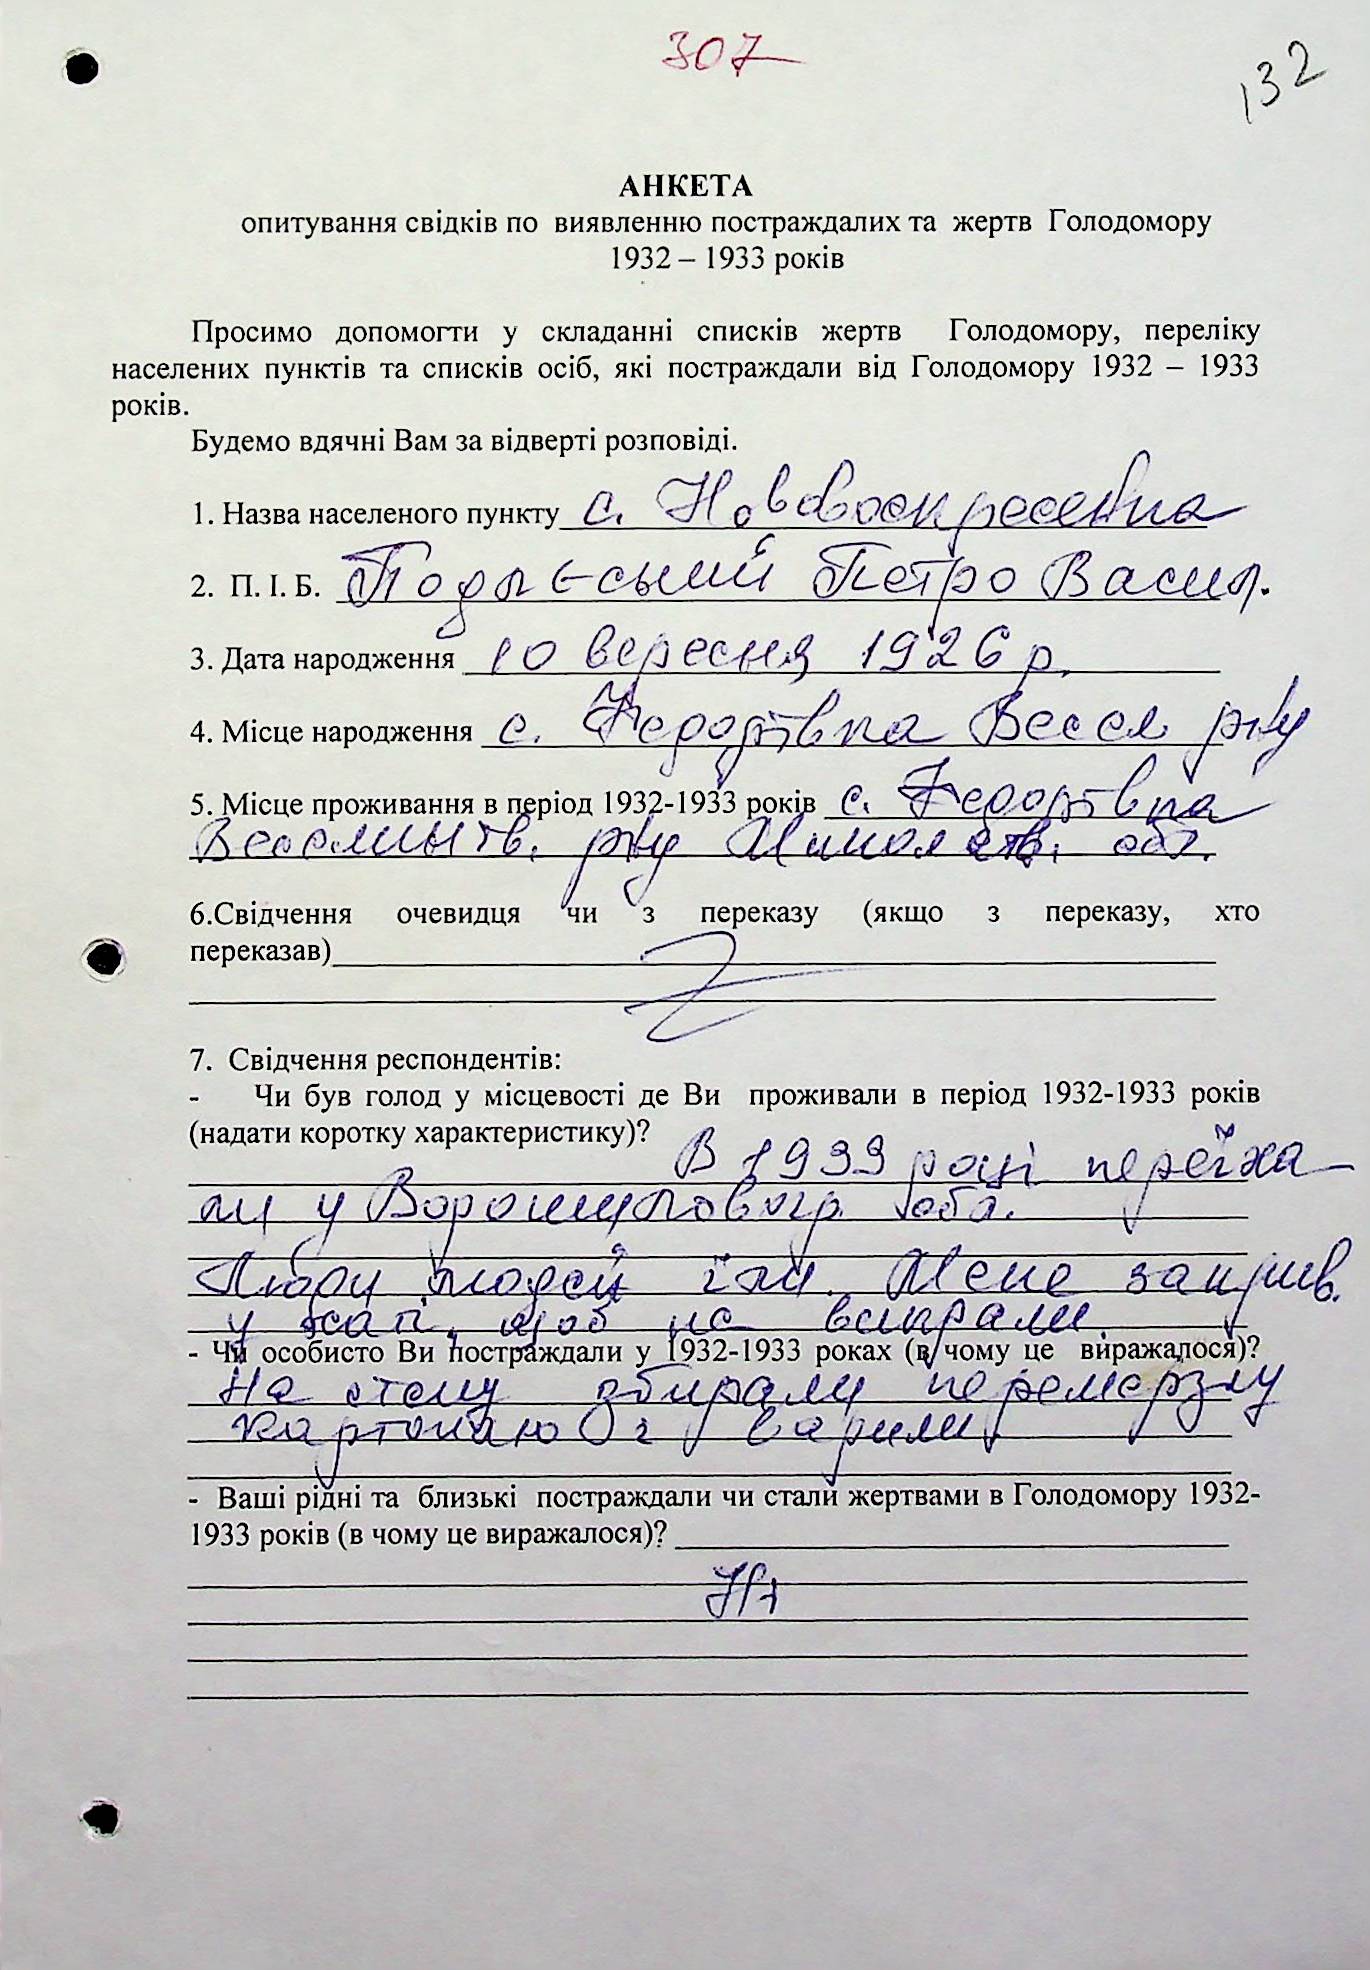 307
132
АНКЕТА
опитування свідків по виявленню постраждалих та жертв Голодомору
1932 – 1933 років
Просимо допомогти у складанні списків жертв Голодомору, переліку
населених пунктів та списків осіб, які постраждали від Голодомору 1932 – 1933
років.
Будемо вдячні Вам за відверті розповіді.
1. Назва населеного пункту с. Нововоскресенка
2. П. І. Б. Петро Васил.
3. Дата народження 10 вересня 1926 р.
4. Місце народження с. Федорівка Весел р-ну
5. Місце проживання в період 1932-1933 років с. Федорівка
р-ну обл.
6.Свідчення очевидця чи з переказу (якщо з переказу, хто
переказав)
7. Свідчення респондентів:
- Чи був голод у місцевості де Ви проживали в період 1932-1933 років
(надати коротку характеристику)?
В 1933 році переїха-
ли у Ворошиловогр. обл.
людей їли. Мене закрив.
у хаті, щоб не вкрали.
- Чи особисто Ви постраждали у 1932-1933 роках (в чому це виражалося)?
На степу збирали перемерзлу
картоплю і варили
- Ваші рідні та близькі постраждали чи стали жертвами в Голодомору 1932-
1933 років (в чому це виражалося)?
Ні